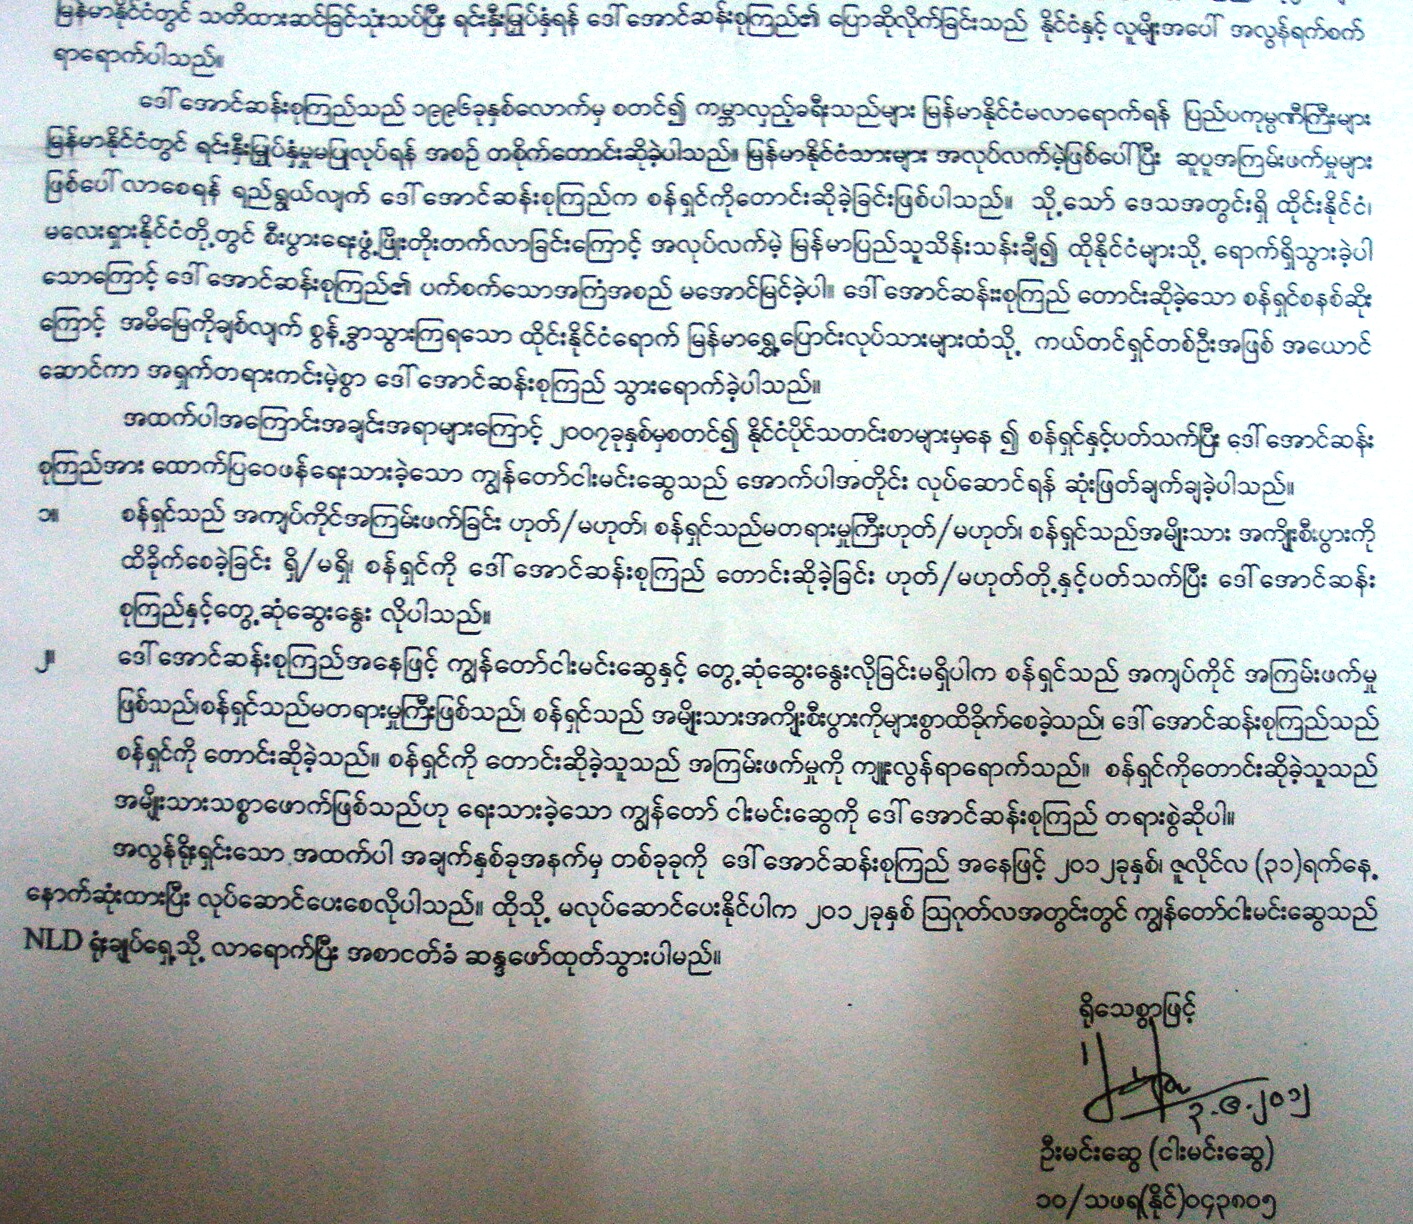 မြန်မာနိုင်ငံတွင် သတိထားဆင်ခြင်သုံးသပ်ပြီး ရင်းနှီးမြှုပ်နှံရန် ဒေါ်အောင်ဆန်းစုကြည်၏ ပြောဆိုလိုက်ခြင်းသည် နိုင်ငံနှင့် လူမျိုးအပေါ် အလွန်ရက်စက်
ရာရောက်ပါသည်။
ဒေါ်အောင်ဆန်းစုကြည်သည် ၁၉၉၆ခုနှစ်လောက်မှ စတင်၍ ကမ္ဘာလှည့်ခရီးသည်များ မြန်မာနိုင်ငံမလာရောက်ရန် ပြည်ပကုမ္ပဏီကြီးများ
မြန်မာနိုင်ငံတွင် ရင်းနှီးမြှုပ်နှံမှုမပြုလုပ်ရန် အစဉ် တစိုက်တောင်းဆိုခဲ့ပါသည်။ မြန်မာနိုင်ငံသားများ အလုပ်လက်မဲ့ဖြစ်ပေါ်ပြီး ဆူပူအကြမ်းဖက်မှုများ
ဖြစ်ပေါ်လာစေရန် ရည်ရွယ်လျက် ဒေါ်အောင်ဆန်းစုကြည်က စန်ရှင်ကိုတောင်းဆိုခဲ့ခြင်းဖြစ်ပါသည်။ သို့သော် ဒေသအတွင်းရှိ ထိုင်းနိုင်ငံ၊
မလေးရှားနိုင်ငံတို့တွင် စီးပွားရေးဖွံ့ဖြိုးတိုးတက်လာခြင်းကြောင့် အလုပ်လက်မဲ့ မြန်မာပြည်သူသိန်းသန်းချီ၍ ထိုနိုင်ငံများသို့ ရောက်ရှိသွားခဲ့ပါ
သောကြောင့် ဒေါ်အောင်ဆန်းစုကြည်၏ ပက်စက်သောအကြံအစည် မအောင်မြင်ခဲ့ပါ။ ဒေါ်အောင်ဆန်းးစုကြည် တောင်းဆိုခဲ့သော စန်ရှင်စနစ်ဆိုး
ကြောင့် အမိမြေကိုချစ်လျက် စွန့်ခွာသွားကြရသော ထိုင်းနိုင်ငံရောက် မြန်မာရွှေ့ပြောင်းလုပ်သားများထံသို့ ကယ်တင်ရှင်တစ်ဦးအဖြစ် အယောင်
ဆောင်ကာ အရှက်တရားကင်းမဲ့စွာ ဒေါ်အောင်ဆန်းစုကြည် သွားရောက်ခဲ့ပါသည်။
အထက်ပါအကြောင်းအချင်းအရာများကြောင့် ၂၀၀၇ခုနှစ်မှစတင်၍ နိုင်ငံပိုင်သတင်းစာများမှနေ ၍ စန်ရှင်နှင့်ပတ်သက်ပြီး ဒေါ်အောင်ဆန်း
စုကြည်အား ထောက်ပြဝေဖန်ရေးသားခဲ့သော ကျွန်တော်ငါးမင်းဆွေသည် အောက်ပါအတိုင်း လုပ်ဆောင်ရန် ဆုံးဖြတ်ချက်ချခဲ့ပါသည်။
၁။ စန်ရှင်သည် အကျပ်ကိုင်အကြမ်းဖက်ခြင်း ဟုတ်/မဟုတ်၊ စန်ရှင်သည်မတရားမှုကြီးဟုတ်/မဟုတ်၊ စန်ရှင်သည်အမျိုးသား အကျိုးစီးပွားကို
ထိခိုက်စေခဲ့ခြင်း ရှိ/မရှိ၊ စန်ရှင်ကို ဒေါ်အောင်ဆန်းစုကြည် တောင်းဆိုခဲ့ခြင်း ဟုတ်/မဟုတ်တို့နှင့်ပတ်သက်ပြီး ဒေါ်အောင်ဆန်း
စုကြည်နှင့်တွေ့ဆုံဆွေးနွေး လိုပါသည်။
၂။ ဒေါ်အောင်ဆန်းစုကြည်အနေဖြင့် ကျွန်တော်ငါးမင်းဆွေနှင့် တွေ့ဆုံဆွေးနွေးလိုခြင်းမရှိပါက စန်ရှင်သည် အကျပ်ကိုင် အကြမ်းဖက်မှု
ဖြစ်သည်၊စန်ရှင်သည်မတရားမှုကြီးဖြစ်သည်၊ စန်ရှင်သည် အမျိုးသားအကျိုးစီးပွားကိုများစွာထိခိုက်စေခဲ့သည်၊ ဒေါ်အောင်ဆန်းစုကြည်သည်
စန်ရှင်ကို တောင်းဆိုခဲ့သည်။ စန်ရှင်ကို တောင်းဆိုခဲ့သူသည် အကြမ်းဖက်မှုကို ကျူးလွန်ရာရောက်သည်။ စန်ရှင်ကိုတောင်းဆိုခဲ့သူသည်
အမျိုးသားသစ္စာဖောက်ဖြစ်သည်ဟု ရေးသားခဲ့သော ကျွန်တော် ငါးမင်းဆွေကို ဒေါ်အောင်ဆန်းစုကြည် တရားစွဲဆိုပါ။
အလွန်ရိုးရှင်းသော အထက်ပါ အချက်နှစ်ခုအနက်မှ တစ်ခုခုကို ဒေါ်အောင်ဆန်းစုကြည် အနေဖြင့် ၂၀၁၂ခုနှစ်၊ ဇူလိုင်လ (၃၁)ရက်နေ့
နောက်ဆုံးထားပြီး လုပ်ဆောင်ပေးစေလိုပါသည်။ ထိုသို့ မလုပ်ဆောင်ပေးနိုင်ပါက ၂၀၁၂ခုနှစ် ဩဂုတ်လအတွင်းတွင် ကျွန်တော်ငါးမင်းဆွေသည်
NLD ရုံးချုပ်ရှေ့သို့ လာရောက်ပြီး အစာငတ်ခံ ဆန္ဒဖော်ထုတ်သွားပါမည်။
ရိုသေစွာဖြင့်
၃.၈.၂၀၁၂
ဦးမင်းဆွေ (ငါးမင်းဆွေ)
၁၀/သဖရ(နိုင်)၀၄၃၈၀၅